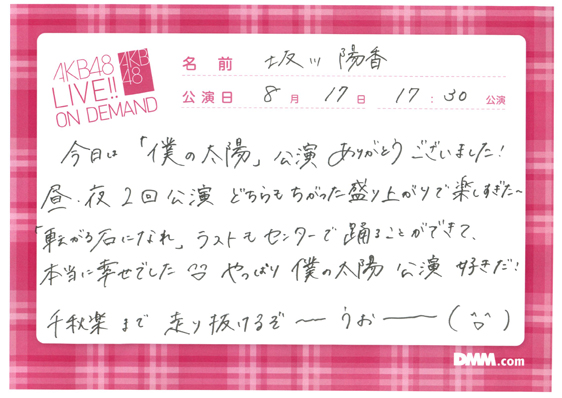 AKB48
LIVE!!
ON DEMAND
AKB
48
名 前 坂川 陽香
公演日 8 月 17 日 17 : 30 公演
今日は「僕の太陽」公演 ありがとうございました!
昼・夜 2回公演 どちらもちがった盛り上がりで楽しすぎた〜
「転がる石になれ」ラストもセンターで踊ることができて、
本当に幸せでした やっぱり 僕の太陽 公演 好きだ!
千秋楽まで 走り抜けるぞ〜 うおー
DMM.com